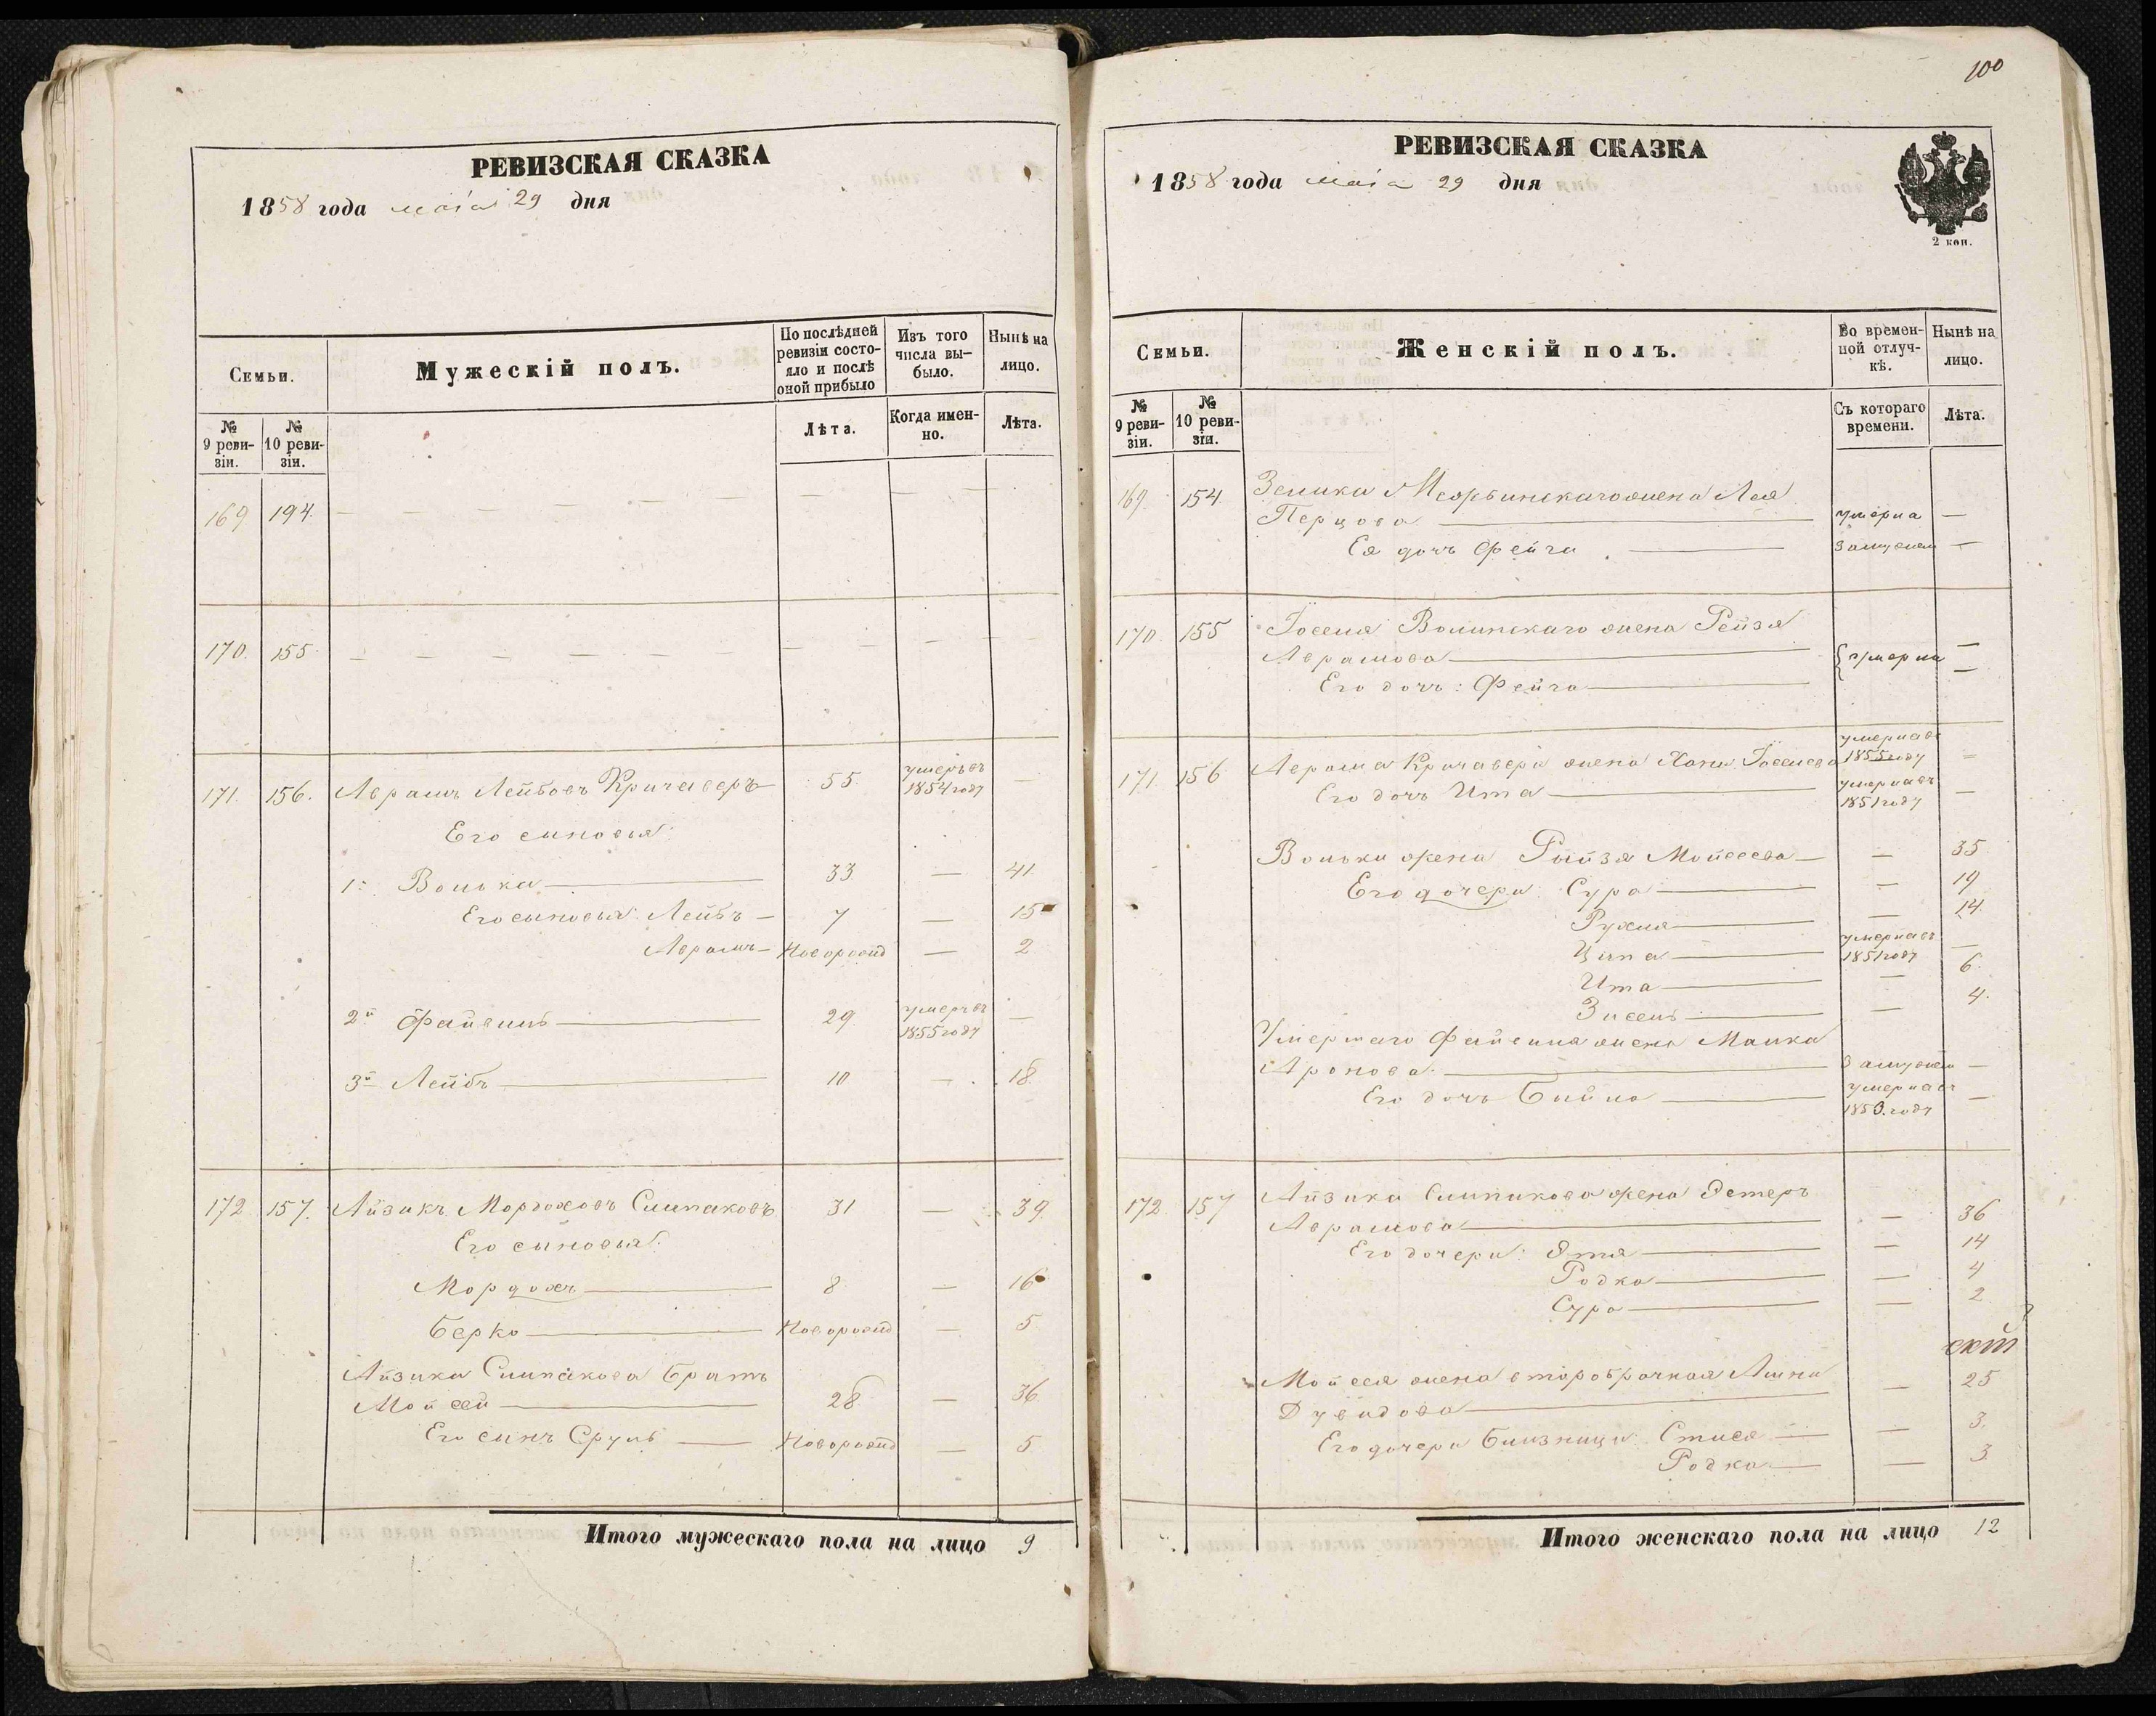 РЕВИЗСКАЯ СКАЗКА
1858 года маія 29 дня
Семьи.
Мужескій полъ.
По послѣдней ревизіи состо-
яло и послѣ оной прибыло
Изъ того числа вы-
было.
Нынѣ на лицо.
№ 9 реви-
зіи.
№ 10 реви-
зіи.
Лѣта.
Когда имен-
но.
Лѣта.
169 194. — — — — — — — — —
170. 155. — — — — — — — — — —
171. 156. Аврамъ Лейбовъ Кричеверъ 55. умеръ въ 1854 году —
Его сыновья:
1й Волька — 33. — 41.
Его сыновья: Лейбъ — 7 — 15
Аврамъ — Новорожд — 2
2й Файвишъ — 29 умеръ въ 1855 году —
3й Лейбъ — 10 — 18.
172 157. Айзикъ Мордоховъ Слипаковъ 31 — 39.
Его сыновья:
Мордохъ — 8 — 16
Берко — Новорожд — 5
Айзика Слипакова братъ
Мойсей — 28 — 36.
Его сынъ Сруль — Новорожд — 5
Итого мужескаго пола на лицо 9
100
РЕВИЗСКАЯ СКАЗКА
1858 года маія 29 дня
2 коп.
Семьи.
Женскій полъ.
Во времен-
ной отлуч-
кѣ.
Нынѣ на лицо.
№ 9 реви-
зіи.
№ 10 реви-
зіи.
Съ котораго времени.
Лѣта.
169. 154. Зелика жена Лея
Перцова — умерла —
Ея дочь Фейга. — замужем —
170. 155 Іоселя Волинскаго жена Рейзя
Аврамова — умерли —
Его дочь: Фейга — —
171. 156 Аврама Кричевера жена Хана Іоселева умерла въ 1855 году —
Его дочь Ита — умерла въ 1851 году —
Вольки жена Рыйзя Мойсеева — — 35
Его дочери: Сура — — 19
Рухля — — 14.
Ципа — умерла въ 1851 году —
Ита — — 6.
Зисель — — 4.
Умершаго Файвиша жена Малка
Аронова. — замужем —
Его дочь Бейла — умерла въ 1853. году —
172. 157 Айзика Слипакова жена Эстеръ
Аврамова — — 36
Его дочери: Этя — — 14
Родка — — 4
Сура — — 2
Мойсея жена второбрачная
Дувидова — — 25
Его дочери близници: Стися — — 3.
Родка — — 3
Итого женскаго пола на лицо 12